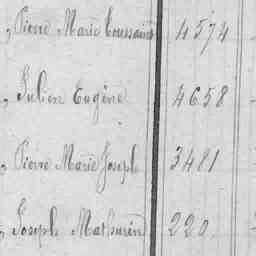 , Pierre Marie Toussaint 4574
, Julien Eugène 4658
, Pierre Marie Joseph 3481
, Joseph Mathurin 220